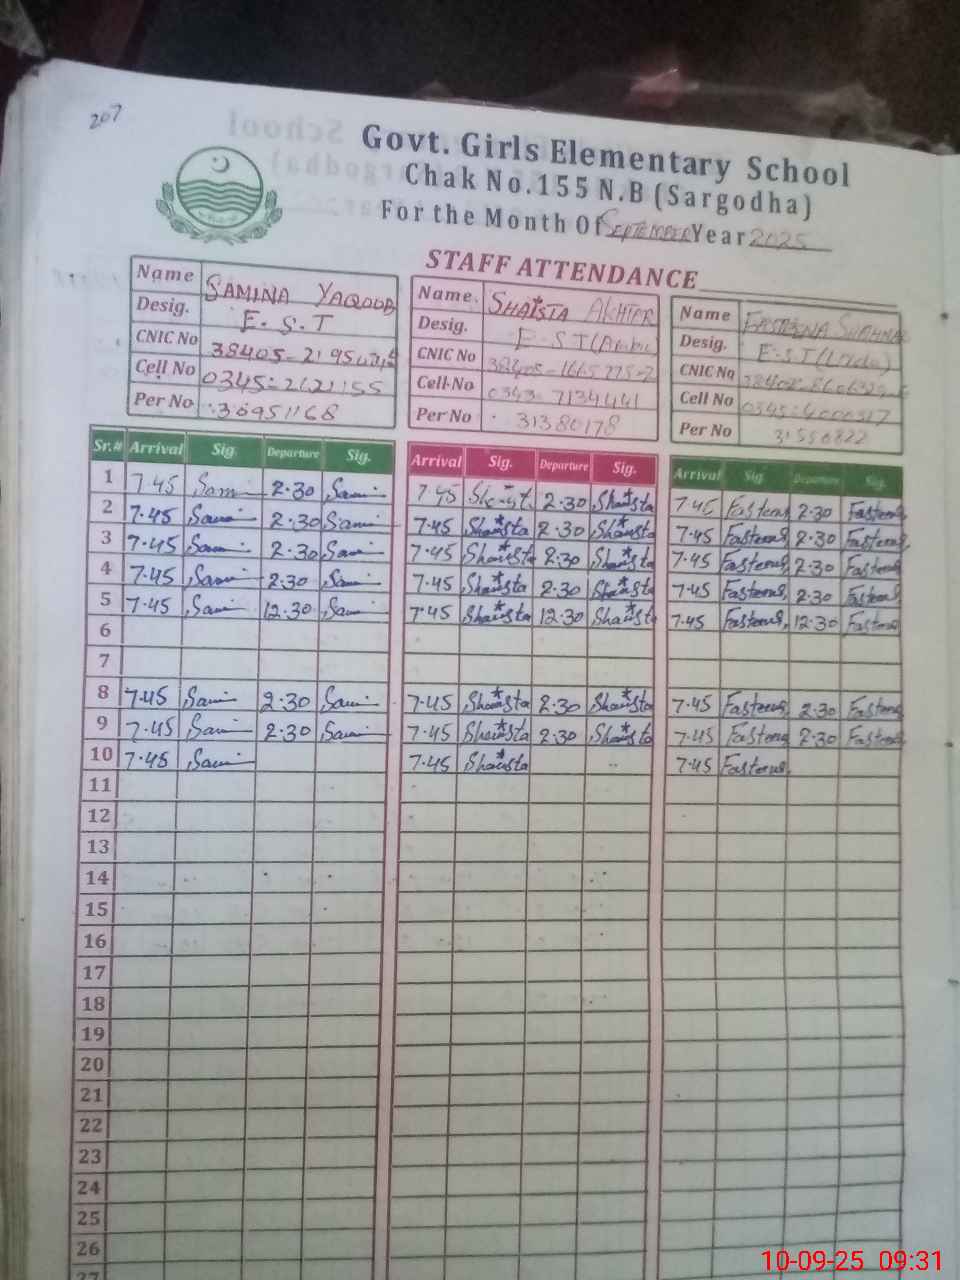 207
Govt. Girls Elementary School
Chak No.155 N.B (Sargodha)
For the Month Of SEPTEMBER Year 2025
STAFF ATTENDANCE
Name SAMINA YAQOOB
Desig. E.S.T
CNIC No
Cell No 0345-2121155
Per No 30951168
Name. SHAISTA AKHTER
Desig. E-S-T(Arabic)
CNIC No
Cell-No 0343-7134441
Per No 31380178
Name
Desig. E-S-T(Urdu)
CNIC No
Cell No
Per No 31550822
Sr.# Arrival Sig. Departure Sig. Arrival Sig. Departure Sig. Arrival Sig Departure Sig.
1 7.45 Sami 2.30 Sami 7.45 Shaista 2.30 Shaista 7.45 Fasteena 2.30 Fasteena
2 7.45 Sami 2.30 Sami 7.45 Shaista 2.30 Shaista 7.45 Fasteena 2.30 Fasteena
3 7.45 Sami 2.30 Sami 7.45 Shaista 2.30 Shaista 7.45 Fasteena 2.30 Fasteena
4 7.45 Sami 2.30 Sami 7.45 Shaista 2.30 Shaista 7.45 Fasteena 2.30 Fasteena
5 7.45 Sami 12.30 Sami 7.45 Shaista 12.30 Shaista 7.45 Fasteena 12.30 Fasteena
6
7
8 7.45 Sami 2.30 Sami 7.45 Shaista 2.30 Shaista 7.45 Fasteena 2.30 Fasteena
9 7.45 Sami 2.30 Sami 7.45 Shaista 2.30 Shaista 7.45 Fasteena 2.30 Fasteena
10 7.45 Sami 7.45 Shaista 7.45 Fasteena
11
12
13
14
15
16
17
18
19
20
21
22
23
24
25
26
27
10-09-25 09:31